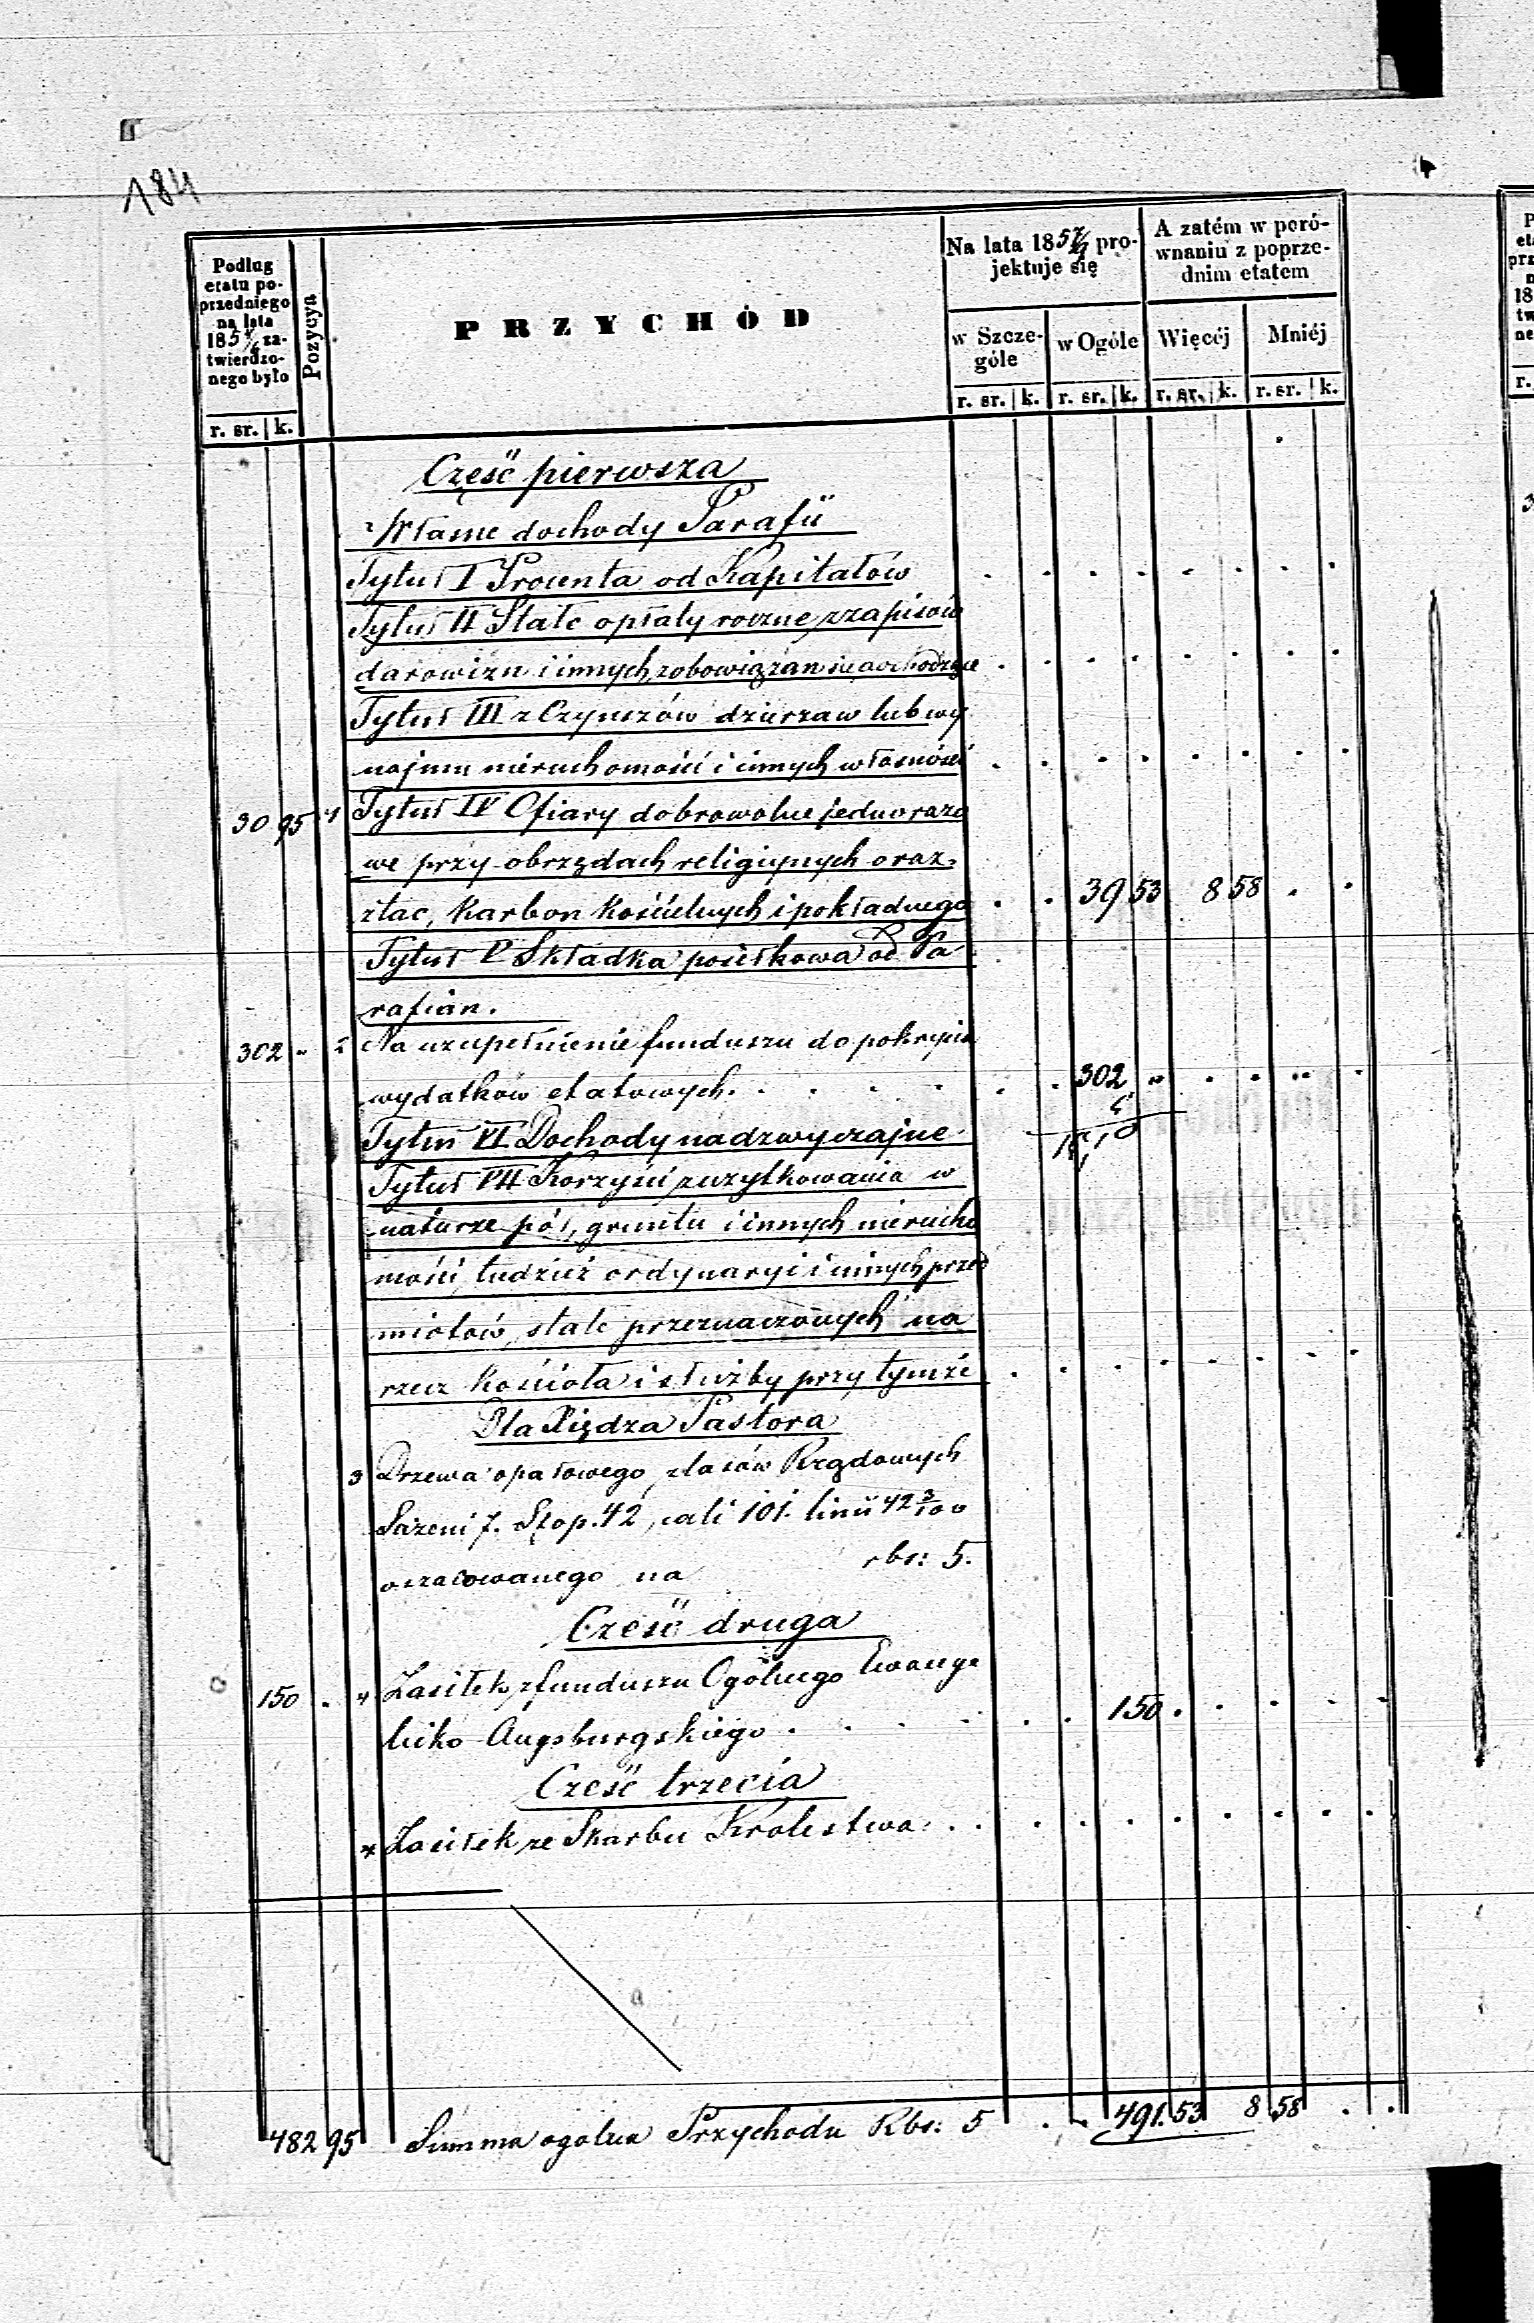 184
Podług etatu poprzedniego na lata 185 4/6 zatwierdzonego było
Pozycya
PRZYCHÓD
Na lata 185 7/9 projektuje się
A zatém w porównaniu z poprzednim etatem
w Szczególe
w Ogóle
Więcéj
Mniéj
r. sr. k. r. sr. k. r. sr. k. r. sr. k. r. sr. k.
Część pierwsza
Własne dochody Parafii
Tytuł I Procenta od Kapitałów
Tytuł II Stałe opłaty roczne z zapisów
darowizn i innych zobowiązań
Tytuł III z Czynszów dzierzaw lub wy
najmu nieruchomości i innych własności
30 95 1 Tytuł IV Ofiary dobrowolne jednorazo
we przy obrzędach religijnych oraz
z tac, Karbon Kościelnych i pokładnego 39 53 8 58
Tytuł V Składka posiłkowa od Pa
rafian.
302 " 2 Na uzupełnienie funduszu do pokrycia
wydatków etatowych. 302 "
Tytuł VI Dochody nadzwyczajne
Tytuł VII Korzyści z uzytkowania w
naturze pól, gruntu i innych nierucho
mości, tudzież ordynaryi i innych przed
miotów, stale przeznaczonych na
rzecz Kościoła i służby przy tymże
Dla Xiędza Pastora
3 Drzewa opałowego, z lasów Rządowych
Sążeni 7. Stop. 42, cali 101. linii 42 3/100
oszacowanego na rbs: 5.
Cześć druga
150 . 4 Zasiłek z funduszu Ogólnego Ewange
licko Augsburgskiego . 150 .
Cześć trzecia
4 Zasiłek ze Skarbu Królestwa
482 95 Summa ogolna Przychodu Rbs: 5 491. 53 8 58